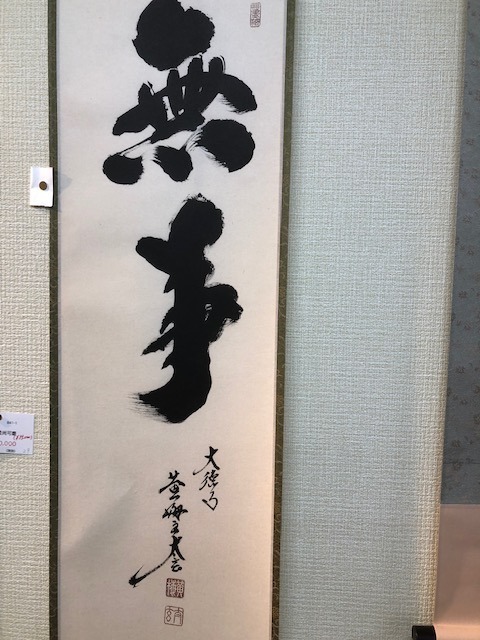 無事
大徳寺
黄梅主太玄
0,000